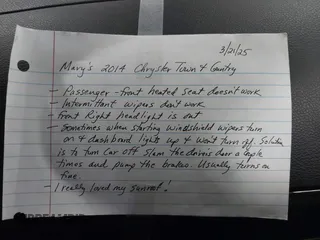 3/21/25
Mary's 2014 Chrysler Town & Cuntry
- Passenger - front heated seat doesn't work
- Intermittant wipers don't work
- Front Right headlight is out
- Sometimes when starting windshield wipers turn
on & dashboard lights up & won't turn off. Solution
is to turn car off slam the drivers door a couple
times and pump the brakes. Usually turns on
fine.
- I really loved my sunroof!